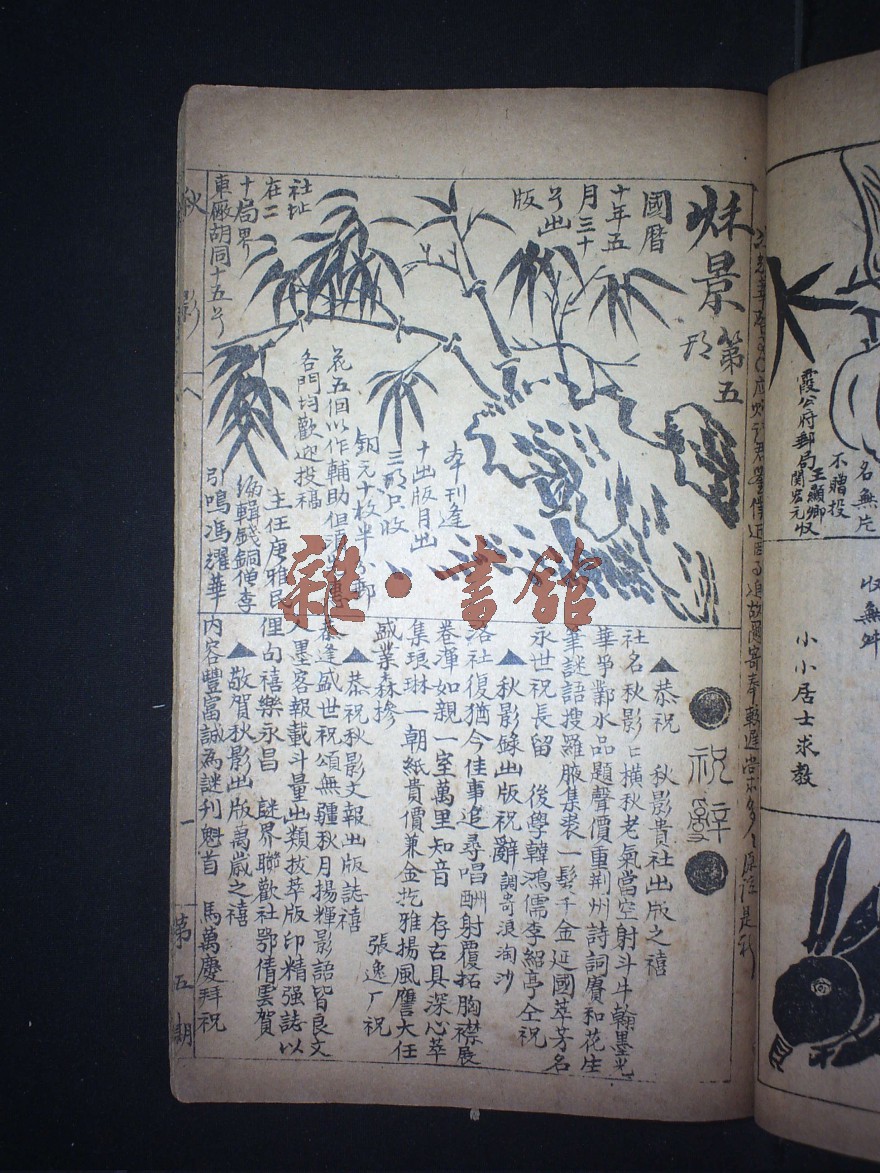 秌景第五
期
國曆
十年五
月三十
号出
版
社址
在二
十局界
東廠胡同十五号
本刊逢
十出版月出
三期只收
銅元十枚半
花五個以作輔助但
各門均歡迎投稿
主任唐雅
編輯錢銅僧李
引鳴馮耀華
祝辭
▲恭祝 秋影貴社出版之禧
社名秋影口橫秋老氣當空射斗牛翰墨光
華爭鄴水品題聲價重荆州詩詞賡和花生
筆謎語搜羅腋集裘一髮千金延國萃芳名
永世祝長留 後學韓鴻儒李紹亭仝祝
▲秋影錄出版祝辭 調寄浪淘沙
洛社復猶今佳事追尋唱酬射覆拓胸襟展
卷渾如親一室萬里知音 存古具深心萃
集琅琳一朝紙貴價兼金扢雅揚風譍大任
盛業森摻 張逸厂祝
▲恭祝秋影文報出版誌禧
逢盛世祝頌無疆秋月揚輝影語皆良文
人墨客報載斗量出類拔萃版印精强誌以
俚句禧樂永昌 謎界聯歡社鄂倩雲賀
▲敬賀秋影出版萬歲之禧
內容豐富誠為謎刊魁首 馬萬慶拜祝
秋影 八 一 第五期
霞公府郵局王顯卿
関宏元收
不贈投
名無片
收無
小小居士求教
雜·書館